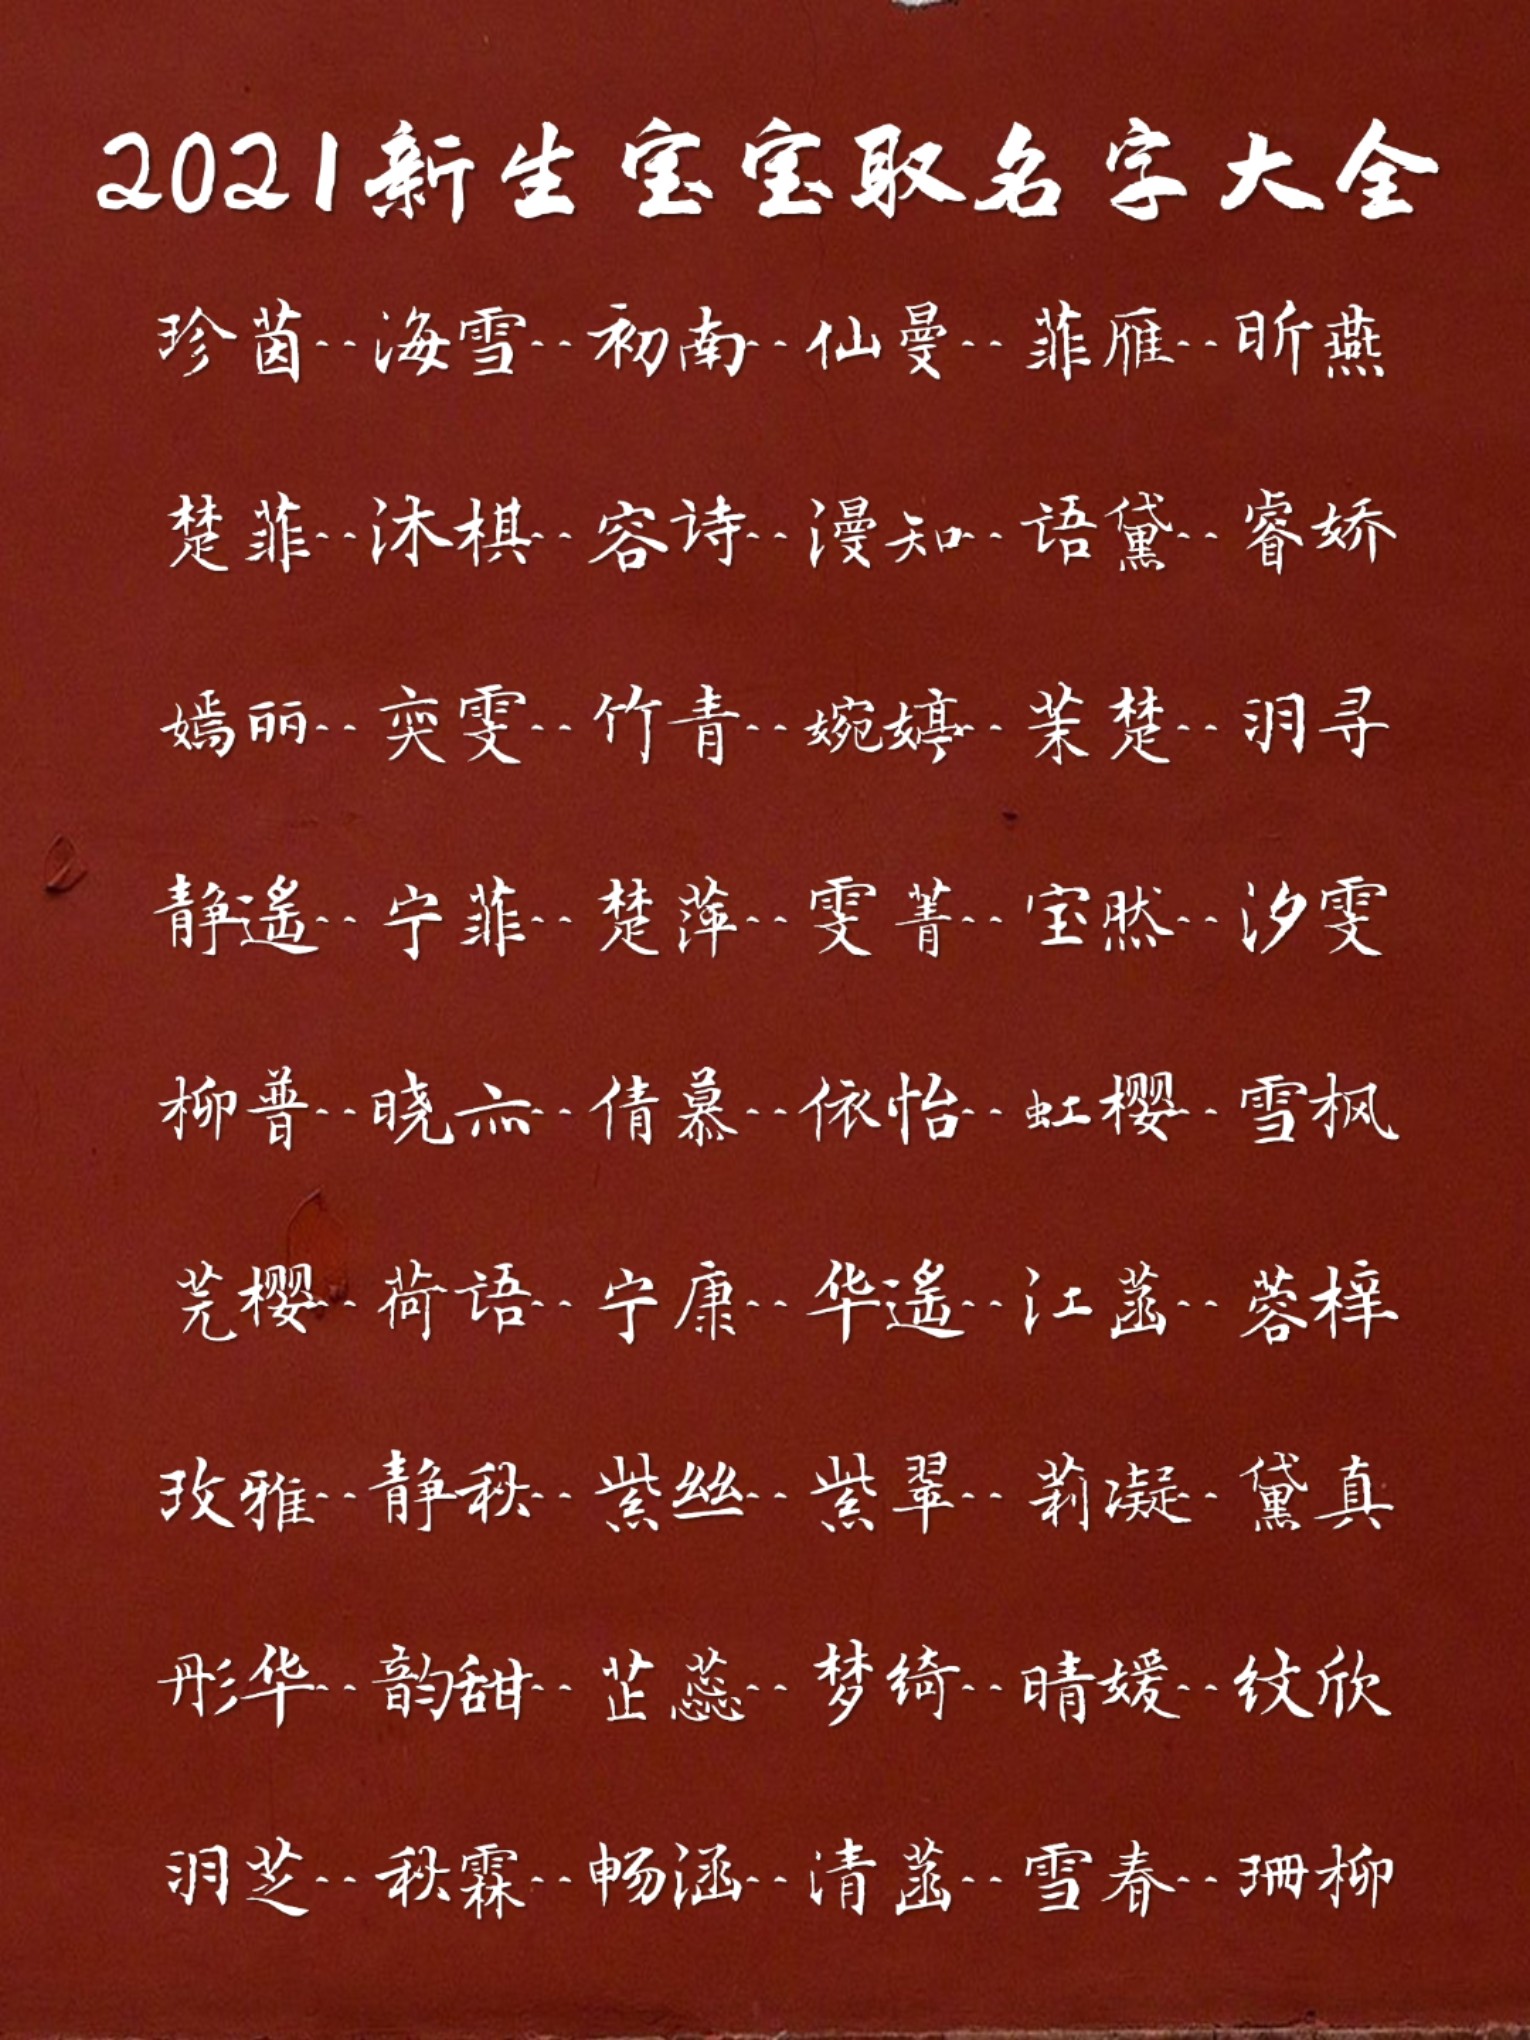 2021新生宝宝取名字大全
珍茵--海雪--初南--仙曼--菲雁--昕燕
楚菲--沐棋--容诗--漫知--语黛--睿娇
嫣丽--奕雯--竹青--婉婷--茉楚--羽寻
静遥--宁菲--楚萍--雯菁--宝然--汐雯
柳普--晓亦--倩慕--依怡--虹樱--雪枫
芫樱--荷语--宁康--华遥--江菡--蓉梓
玫雅--静秋--紫丝--紫翠--莉凝--黛真
彤华--韵甜--芷蕊--梦绮--晴媛--纹欣
羽芝--秋霖--畅涵--清菡--雪春--珊柳